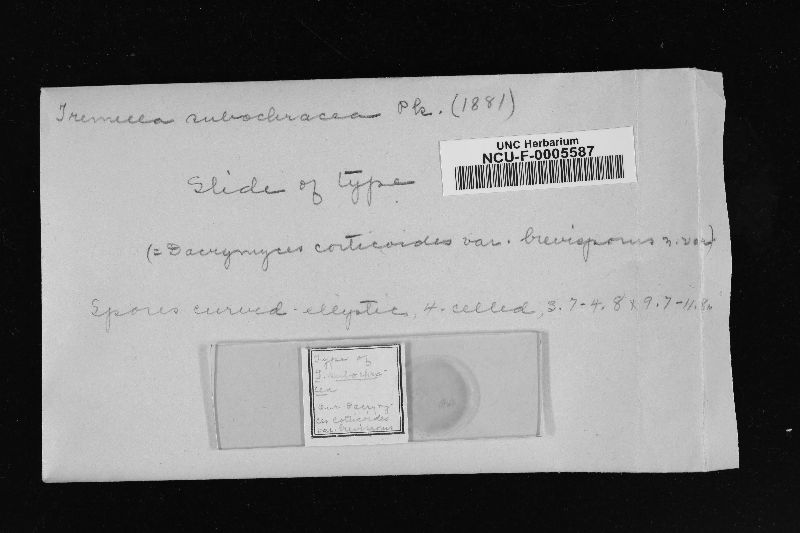 Tremella subochracea Pk. (1881)
UNC Herbarium
NCU-F-0005587
Slide of type
(= Dacrymyces corticoides var. brevisporus n. var)
Spores curved-elliptic, 4-celled, 3.7-4.8 x 9.7-11.8µ
Type of
T. subochra-
cea
Our Dacrymy-
ces corticoides
var. brevisporus